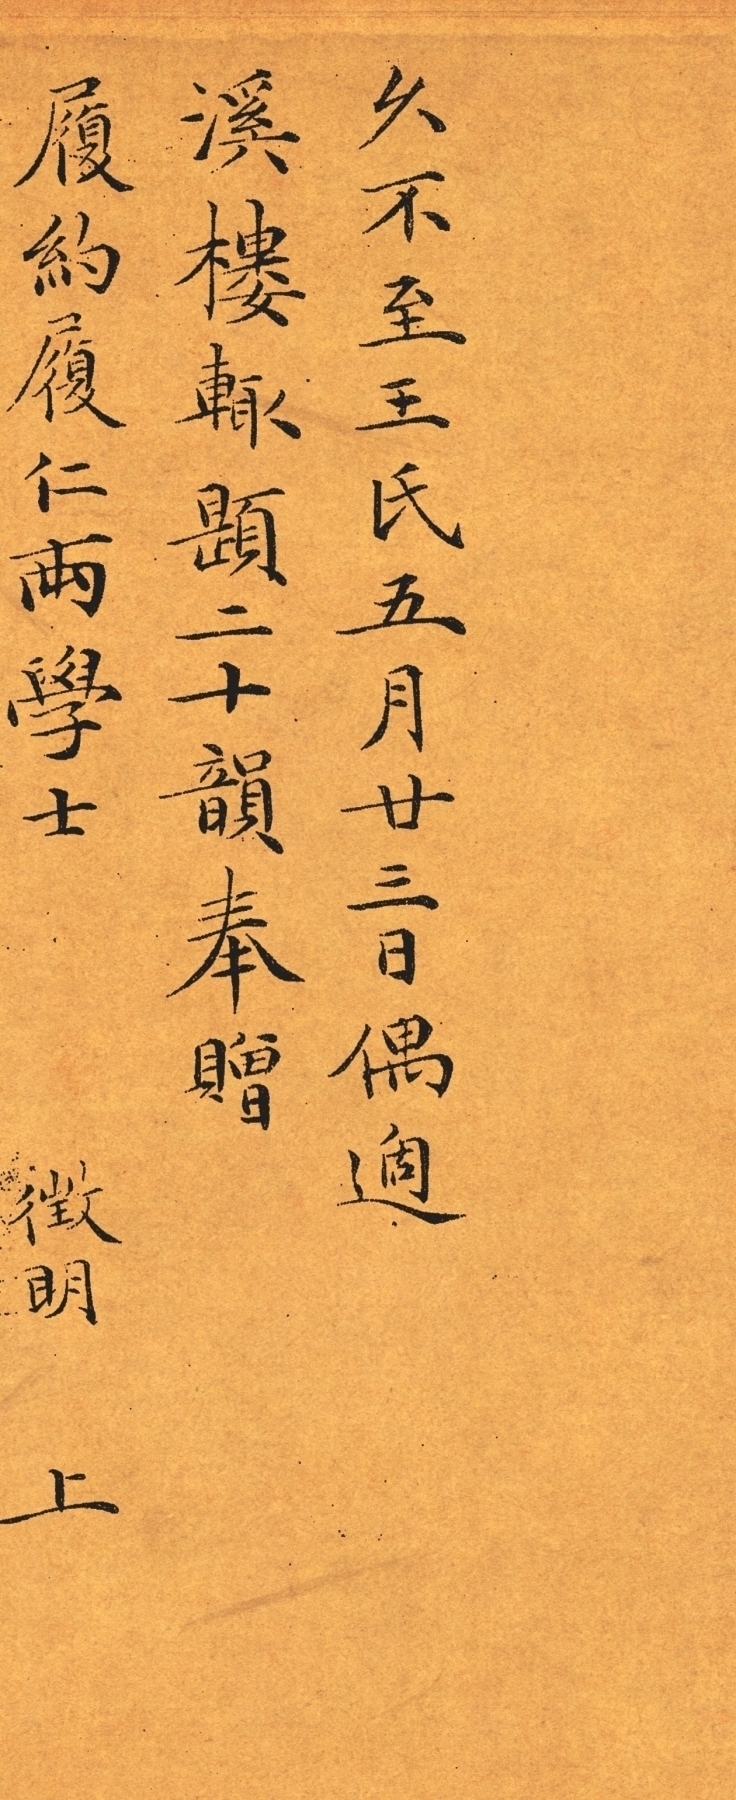 久不至王氏五月廿三日偶過
溪樓輙題二十韻奉贈
履約履仁兩學士　徵明　上